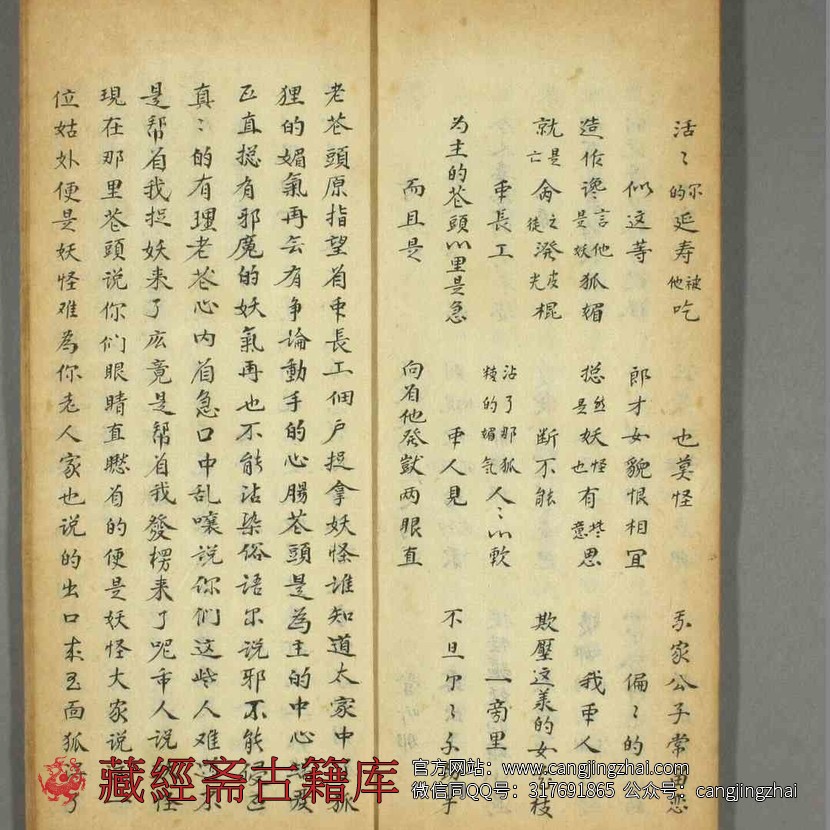 活〻的尔延寿他被吃 也莫怪 家公子常思恋
似这等 郎才女貌恨相宜 偏〻的
造作谗言是他妖狐媚 总然是妖怪也有些意思 我众人
就是亡命之徒泼皮光棍 断不能 欺壓这美的女
众長工 沾了那狐狸的媚气 众人见 人〻心軟 一旁里
为主的苍頭心里是急 不旦
而且是 向着他發獃两眼直
老苍頭原指望着众長工佃户捉拿妖怪谁知道太家中狐
狸的媚氣再云有争論動手的心腸苍頭是為主的中心
正直捴有邪魔的妖氣再也不能沾染俗语尔说邪不能
真〻的有理老苍心内着急口中乱嚷说你们这些人难
是帮着我捉妖来了庅竟是帮着我發楞来了呢众人说
現在那里苍頭说你们眼睛直瞅着的便是妖怪大家说
位姑外便是妖怪难為你老人家也说的出口来玉面狐
藏經斋古籍库
官方网站：www.cangjingzhai.com
微信同QQ号：317691865 公众号：cangjingzhai